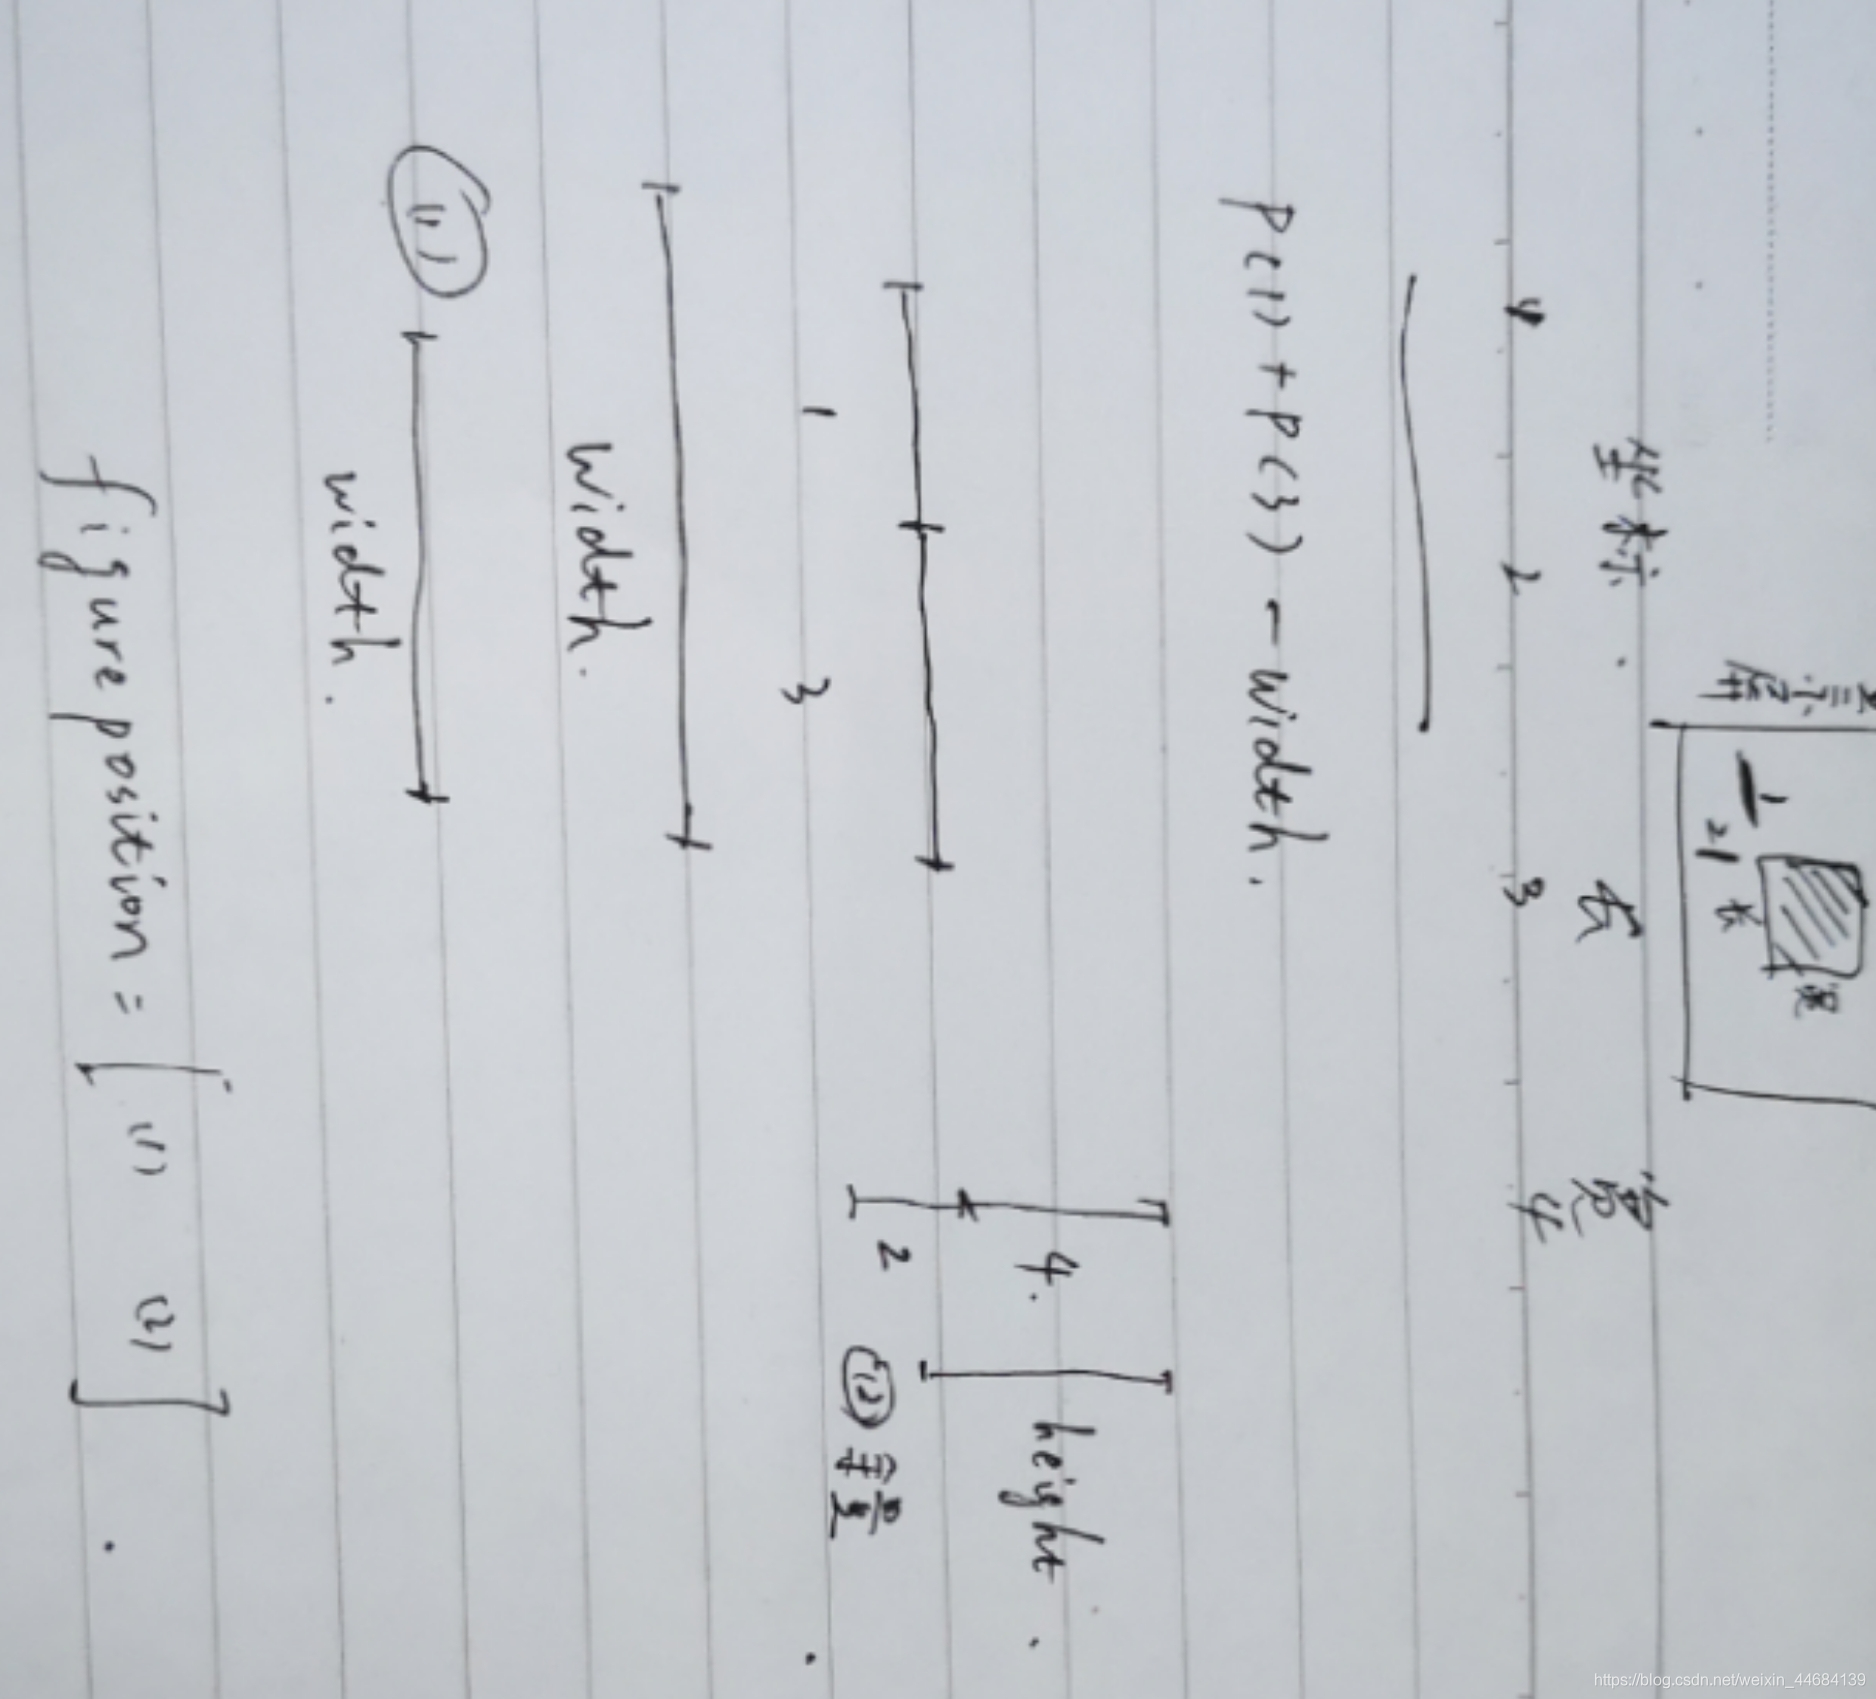 示屏
1
2 长 宽
坐标. 长 宽
1 2 3 4
P(1)+P(3)-width.
4. height.
1 3 2 (2)
width.
(1) width.
figure position = [ (1) (2) ].
https://blog.csdn.net/weixin_44684139